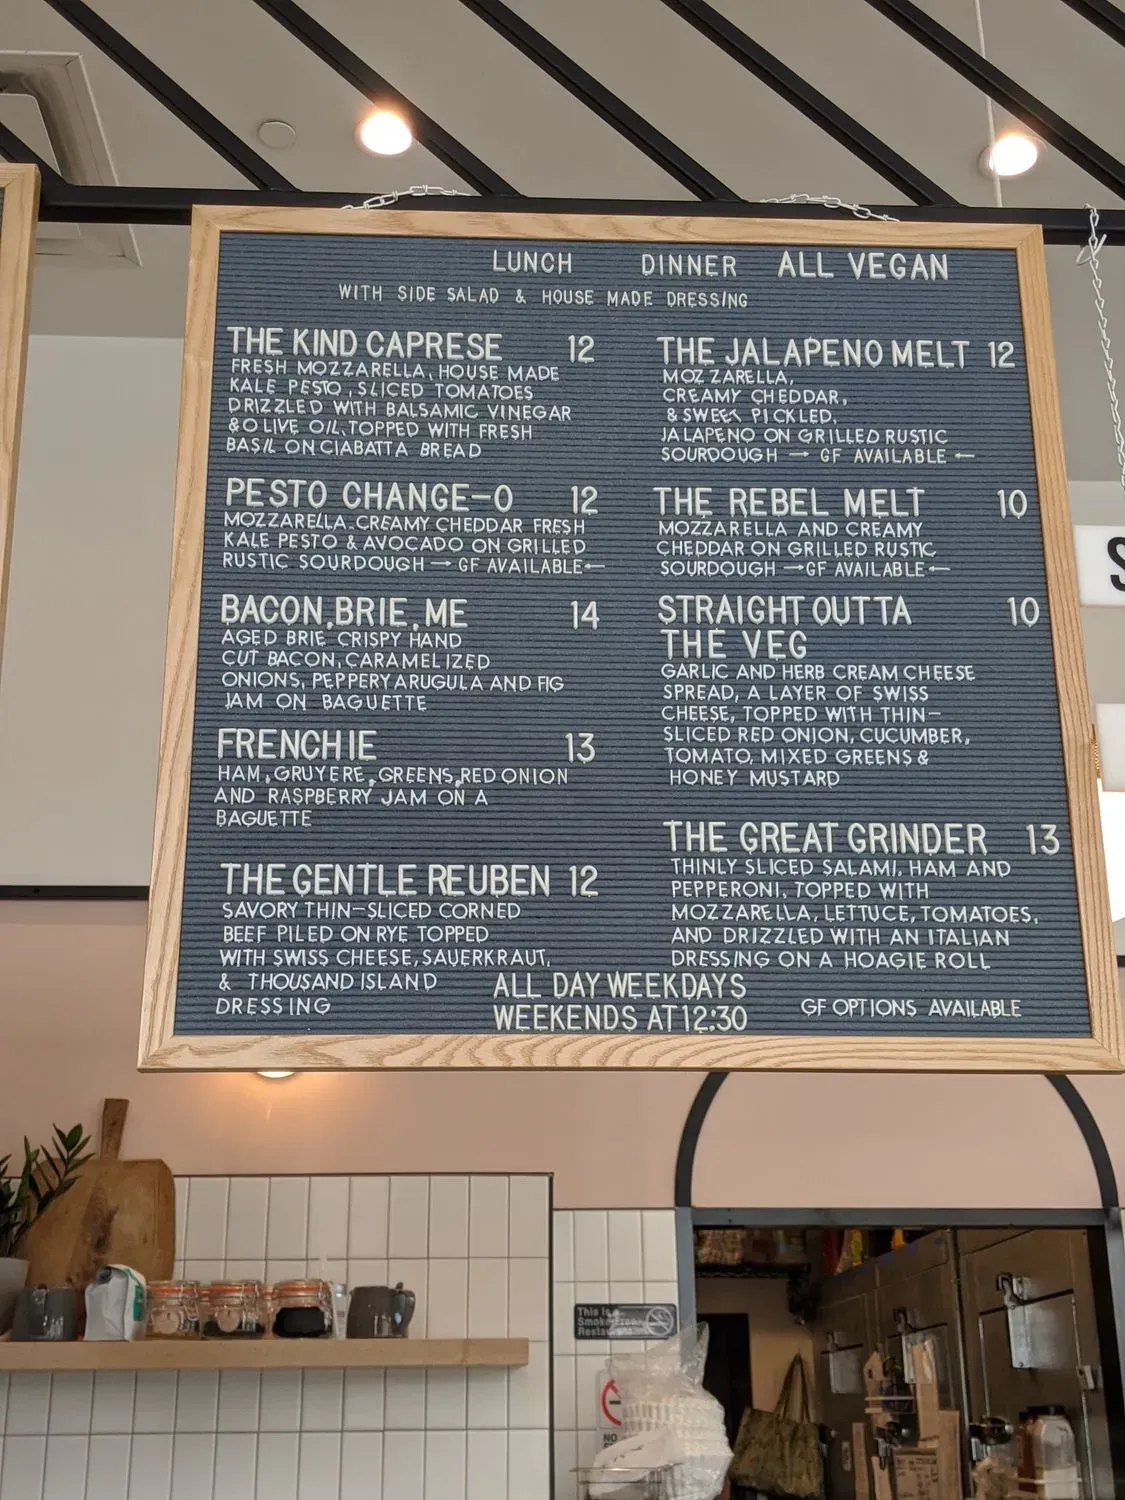 LUNCH DINNER ALL VEGAN
WITH SIDE SALAD & HOUSE MADE DRESSING
THE KIND CAPRESE 12
FRESH MOZZARELLA, HOUSE MADE
KALE PESTO, SLICED TOMATOES
DRIZZLED WITH BALSAMIC VINEGAR
&OLIVE OIL, TOPPED WITH FRESH
BASIL ON CIABATTA BREAD
PESTO CHANGE-O 12
MOZZARELLA, CREAMY CHEDDAR FRESH
KALE PESTO & AVOCADO ON GRILLED
RUSTIC SOURDOUGH → GF AVAILABLE←
BACON, BRIE, ME 14
AGED BRIE CRISPY HAND
CUT BACON, CARAMELIZED
ONIONS, PEPPERY ARUGULA AND FIG
JAM ON BAGUETTE
FRENCHIE 13
HAM, GRUYERE, GREENS, RED ONION
AND RASPBERRY JAM ON A
BAGUETTE
THE GENTLE REUBEN 12
SAVORY THIN-SLICED CORNED
BEEF PILED ON RYE TOPPED
WITH SWISS CHEESE, SAUERKRAUT,
& THOUSAND ISLAND
DRESSING
THE JALAPENO MELT 12
MOZZARELLA,
CREAMY CHEDDAR,
& SWEET PICKLED,
JALAPENO ON GRILLED RUSTIC
SOURDOUGH → GF AVAILABLE ←
THE REBEL MELT 10
MOZZARELLA AND CREAMY
CHEDDAR ON GRILLED RUSTIC
SOURDOUGH →GF AVAILABLE←
STRAIGHT OUTTA 10
THE VEG
GARLIC AND HERB CREAM CHEESE
SPREAD, A LAYER OF SWISS
CHEESE, TOPPED WITH THIN-
SLICED RED ONION, CUCUMBER,
TOMATO, MIXED GREENS &
HONEY MUSTARD
THE GREAT GRINDER 13
THINLY SLICED SALAMI, HAM AND
PEPPERONI, TOPPED WITH
MOZZARELLA, LETTUCE, TOMATOES,
AND DRIZZLED WITH AN ITALIAN
DRESSING ON A HOAGIE ROLL
ALL DAY WEEKDAYS
WEEKENDS AT 12:30
GF OPTIONS AVAILABLE
S
This is a
Smoke-Free
Restaurant
NO